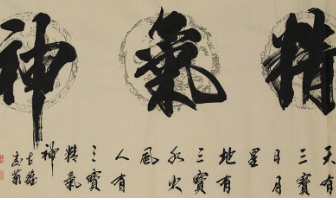 精氣神
天有
三寶
日月
星
地有
三寶
水火
風
人有
三寶
精氣
神